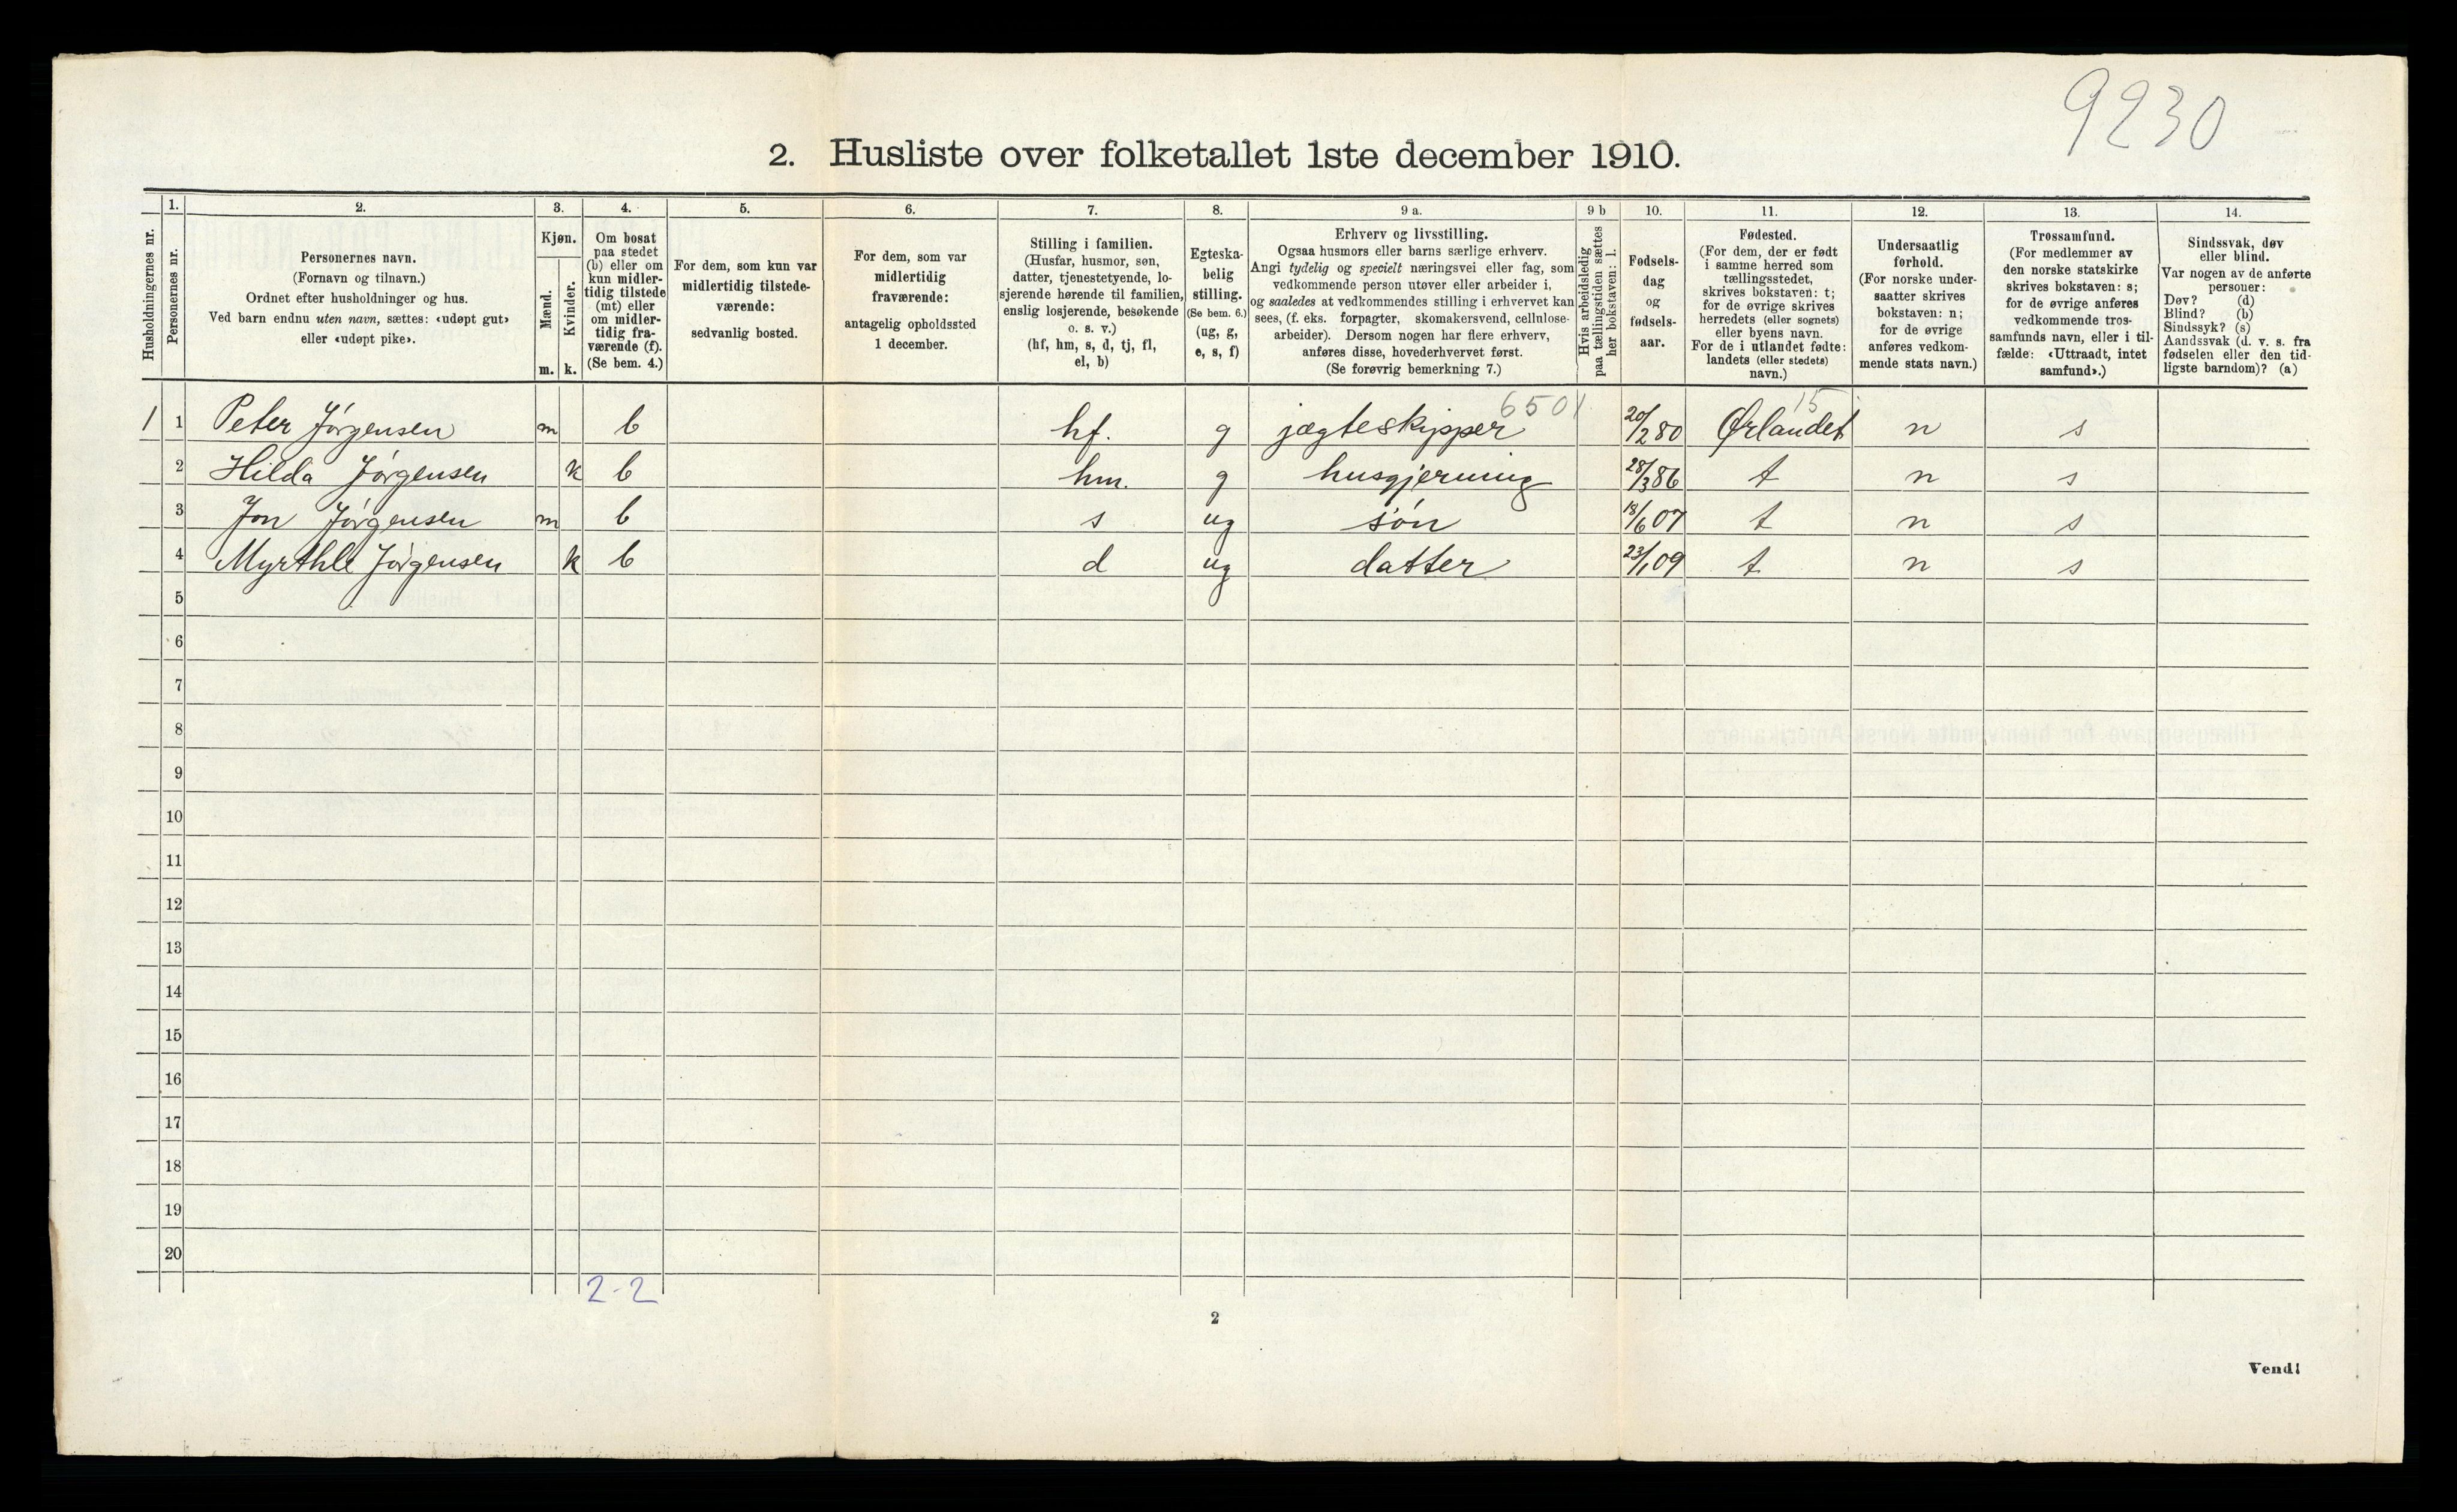 9230
2. Husliste over folketallet 1ste december 1910.
1. 2. 3. 4. 5. 6. 7. 8. 9 a. 9 b 10. 11. 12. 13. 14.
Husholdningernes nr.
Personernes nr.
Personernes navn.
(Fornavn og tilnavn.)
Ordnet efter husholdninger og hus.
Ved barn endnu uten navn, sættes: «udøpt gut»
eller «udøpt pike».
Kjøn.
Mænd.
Kvinder.
m. k.
Om bosat
paa stedet
(b) eller om
kun midler-
tidig tilstede
(mt) eller
om midler-
tidig fra-
værende (f).
(Se bem. 4.)
For dem, som kun var
midlertidig tilstede-
værende:
sedvanlig bosted.
For dem, som var
midlertidig
fraværende:
antagelig opholdssted
1 december.
Stilling i familien.
(Husfar, husmor, søn,
datter, tjenestetyende, lo-
sjerende hørende til familien,
enslig losjerende, besøkende
o. s. v.)
(hf, hm, s, d, tj, fl,
el, b)
Egteska-
belig
stilling.
(Se bem. 6.)
(ug, g,
e, s, f)
Erhverv og livsstilling.
Ogsaa husmors eller barns særlige erhverv.
Angi tydelig og specielt næringsvei eller fag, som
vedkommende person utøver eller arbeider i,
og saaledes at vedkommendes stilling i erhvervet kan
sees, (f. eks. forpagter, skomakersvend, cellulose-
arbeider). Dersom nogen har flere erhverv,
anføres disse, hovederhvervet først.
(Se forøvrig bemerkning 7.)
Hvis arbeidsledig
paa tællingstiden sættes
her bokstaven: l.
Fødsels-
dag
og
fødsels-
aar.
Fødested.
(For dem, der er født
i samme herred som
tællingsstedet,
skrives bokstaven: t;
for de øvrige skrives
herredets (eller sognets)
eller byens navn.
For de i utlandet fødte:
landets (eller stedets)
navn.)
Undersaatlig
forhold.
(For norske under-
saatter skrives
bokstaven: n;
for de øvrige
anføres vedkom-
mende stats navn.)
Trossamfund.
(For medlemmer av
den norske statskirke
skrives bokstaven: s;
for de øvrige anføres
vedkommende tros-
samfunds navn, eller i til-
fælde: «Uttraadt, intet
samfund».)
Sindssvak, døv
eller blind.
Var nogen av de anførte
personer:
Døv? (d)
Blind? (b)
Sindssyk? (s)
Aandssvak (d. v. s. fra
fødselen eller den tid-
ligste barndom)? (a)
6501 15
1 1 Peter Jørgensen m b hf. g jægteskipper 20/2 80 Ørlandet n s
2 Hilda Jørgensen k b hm. g husgjerning 28/3 86 t n s
3 Jon Jørgensen m b s ug søn 18/6 07 t n s
4 Myrthle Jørgensen k b d ug datter 23/1 09 t n s
5
6
7
8
9
10
11
12
13
14
15
16
17
18
19
20
2-2
2
Vend!